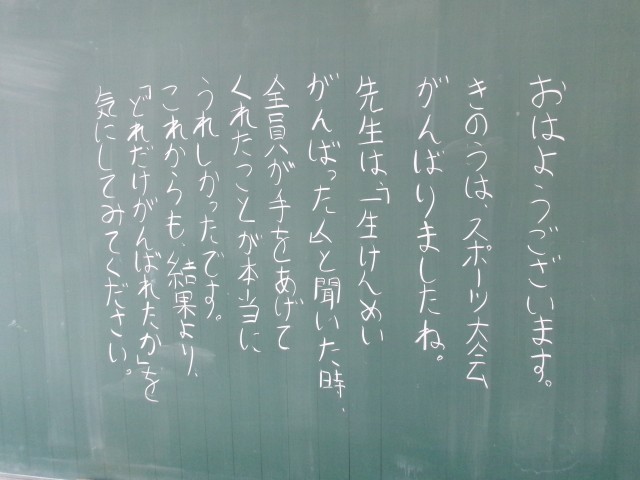 おはようございます。
きのうは、スポーツ大会
がんばりましたね。
先生は「一生けんめい
がんばった人」と聞いた時、
全員が手をあげて
くれたことが本当に
うれしかったです。
これからも、結果より、
「どれだけがんばれたか」を
気にしてみてください。